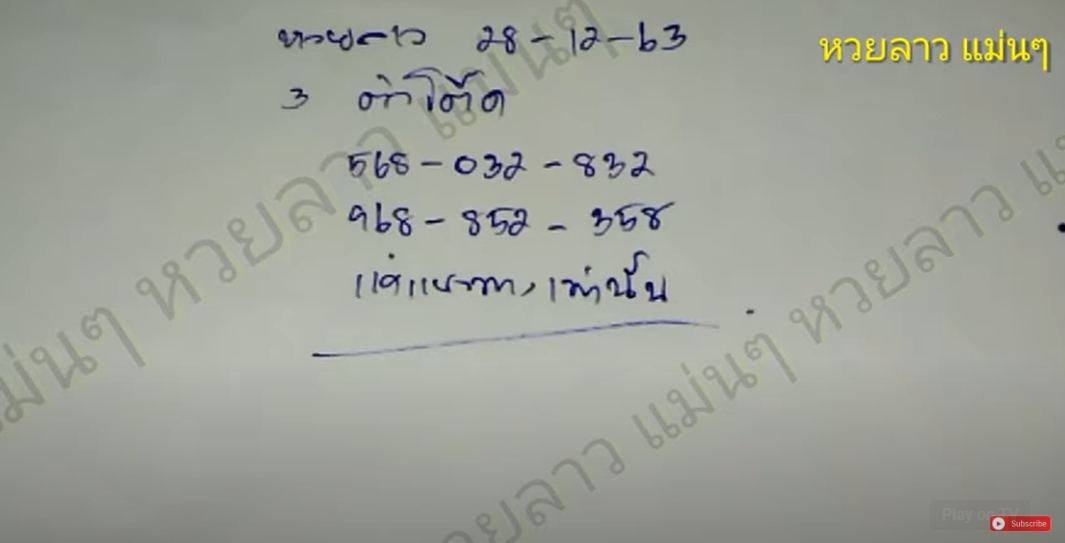 หวยลาว 28-12-63
หวยลาว แม่นๆ
3 ตัวโต๊ด
568-032-832
968-852-358
เท่านั้น
แม่นๆ หวยลาว แม่นๆ
หวยลาว แม่นๆ หวยลาว แม่นๆ
Play on TV
Subscribe